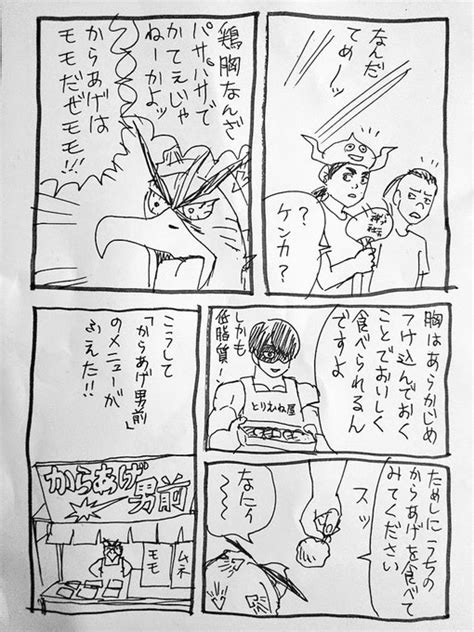 なんだ
てめーッ
?
ケンカ?
鶏胸なんざ
パサパサで
かてえじゃ
ねーかよッ
からあげは
モモだぜモモ!!!
胸はあらかじめ
つけ込んでおく
ことでおいしく
食べられるん
ですよ
しかも
低脂質!
とりむね屋
ためしにうちの
からあげを食べて
みてください
スッ
なにぃ
こうして
「からあげ男前」
のメニューが
ふえた!!
からあげ
男前
ムネ
モモ